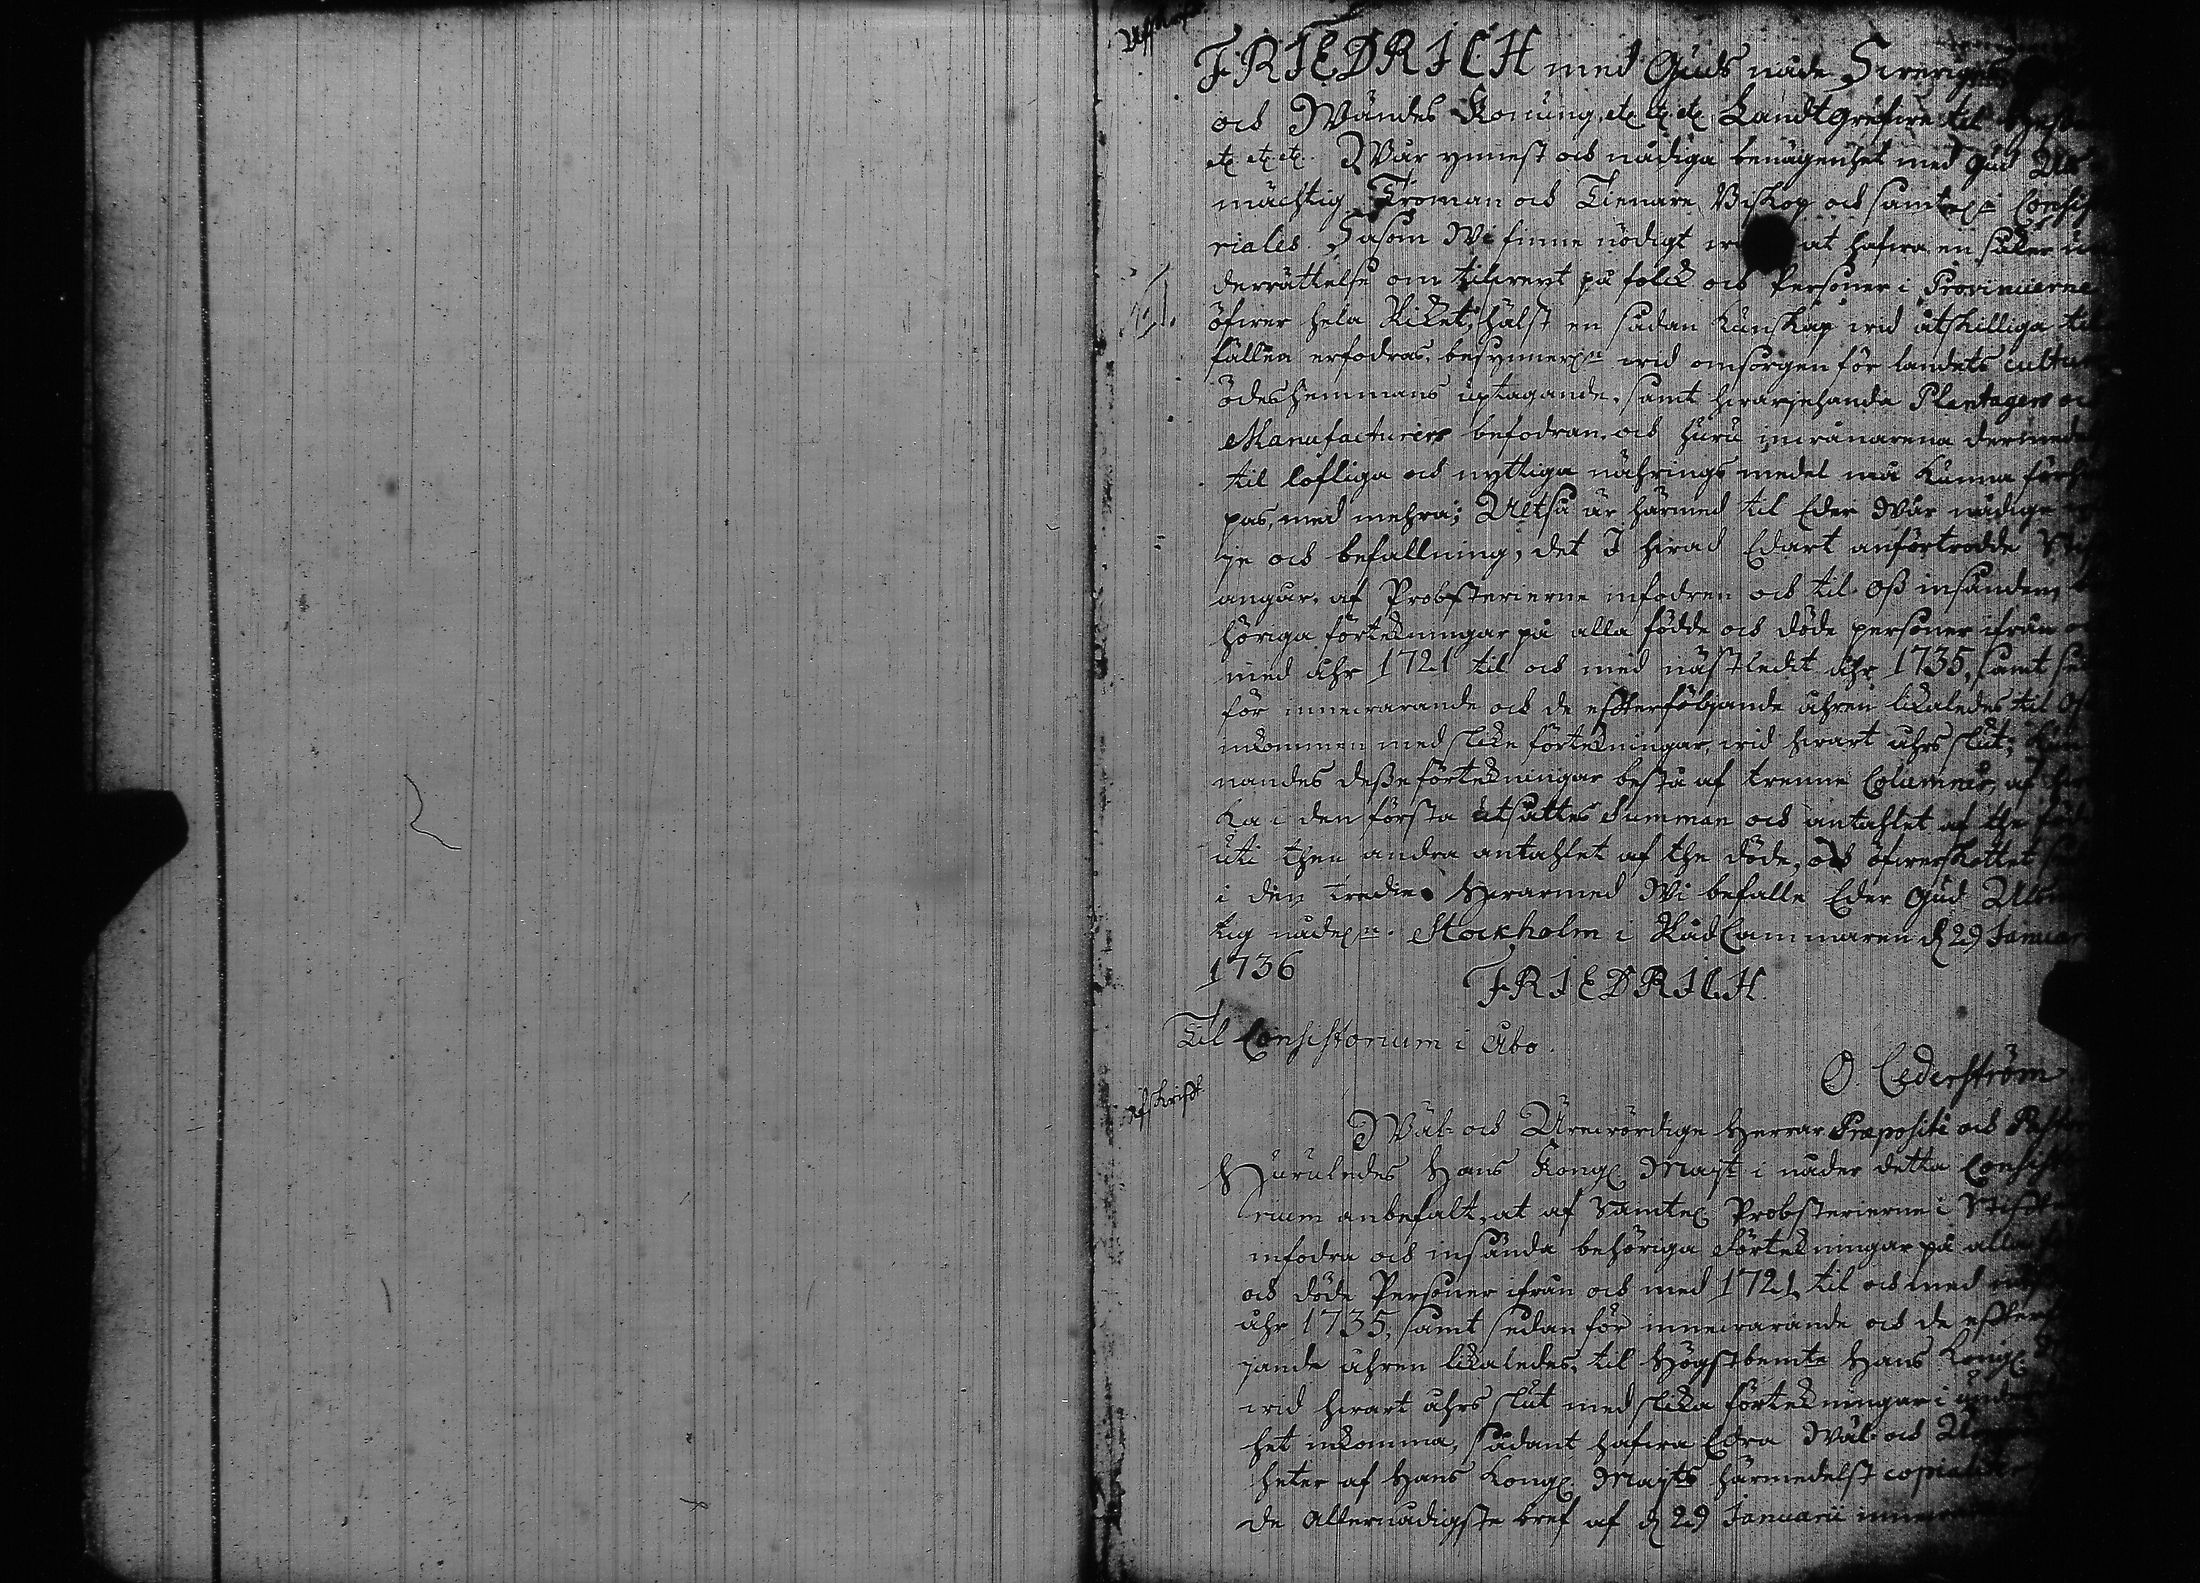 Afskrift
FRIEDRICH med Guds nåde Sweriges
och Wändes Konung, etc etc etc Landtgrefwe til Hessen
etc etc etc. Wår ynnest och nådiga benägenhet med Gud Als
mächtig, Troman och Tienare, Biskop och samtel:n Consisto
riales. Såsom Wi finne nödigt at hafwa en säker un
derrättelse om tilwext på folck och Personer i Provincierne
öfwer hela Riket, hälst en sådan kunskap wid åtskilliga til
fällen erfodras, besynnerl:n wid omsorgen för landets cultur
ödeshemmans uptagande, samt hwarjehanda Plantagers och
Manufacturers befodran, och huru inwånarena dermedelst
til lofliga och nyttiga nährings medel må kunna förhjel
pas, med mehra; Altså är härmed til Eder Wår nådige wil
je och befallning, det I hwad Edart anförtrodde Stift
angår, af Probsterierne infodren och til Oss insänden, be
höriga förtekningar på alla födde och döde personer ifrån och
med åhr 1721 til och med nästledit åhr 1735, samt sedan
för innewarande och de efterföljande åhren likaledes til Oss
inkommen med slike förtekningar, wid hwart åhrs slut; kun
nandes desse förtekningar bestå af trenne Columner, af hwil
ka i den första utsättes Summan och antahlet af the födde
uti then andra antahlet af the döde, och öfwerskottet sedan
i den tredie. Hwarmed Wi befalle Eder Gud Alsmäch
tig nådel:n. Stockholm i RådCammaren d 29 Januarii
1736
FRIEDRICH.
Til Consistorium i Åbo.
O. Cederström
Afskrift
Wäl- och Ährewördige Herrar Præpositi och Pastores
Huruledes Hans Kongl Maj:t i nåder detta Consisto
rium anbefalt, at af Samtel Probsterierne i Stiftet
infodra och insända behöriga Förtekningar på alla födde
och döde Personer ifrån och med 1721 til och med nästl
åhr 1735, samt sedan för innewarande och de efterföl
jande åhren likaledes, til Högstbemte Hans Kongl Maj
wid hwart åhrs slut med slika förtekningar i underdånig
het inkomma, sådant hafwa Edra Wäl- och Ähre
heter af Hans Kongl Maj:ts härmedelst copialiter
de Allernådigste bref af d 29 Januarii innewarande